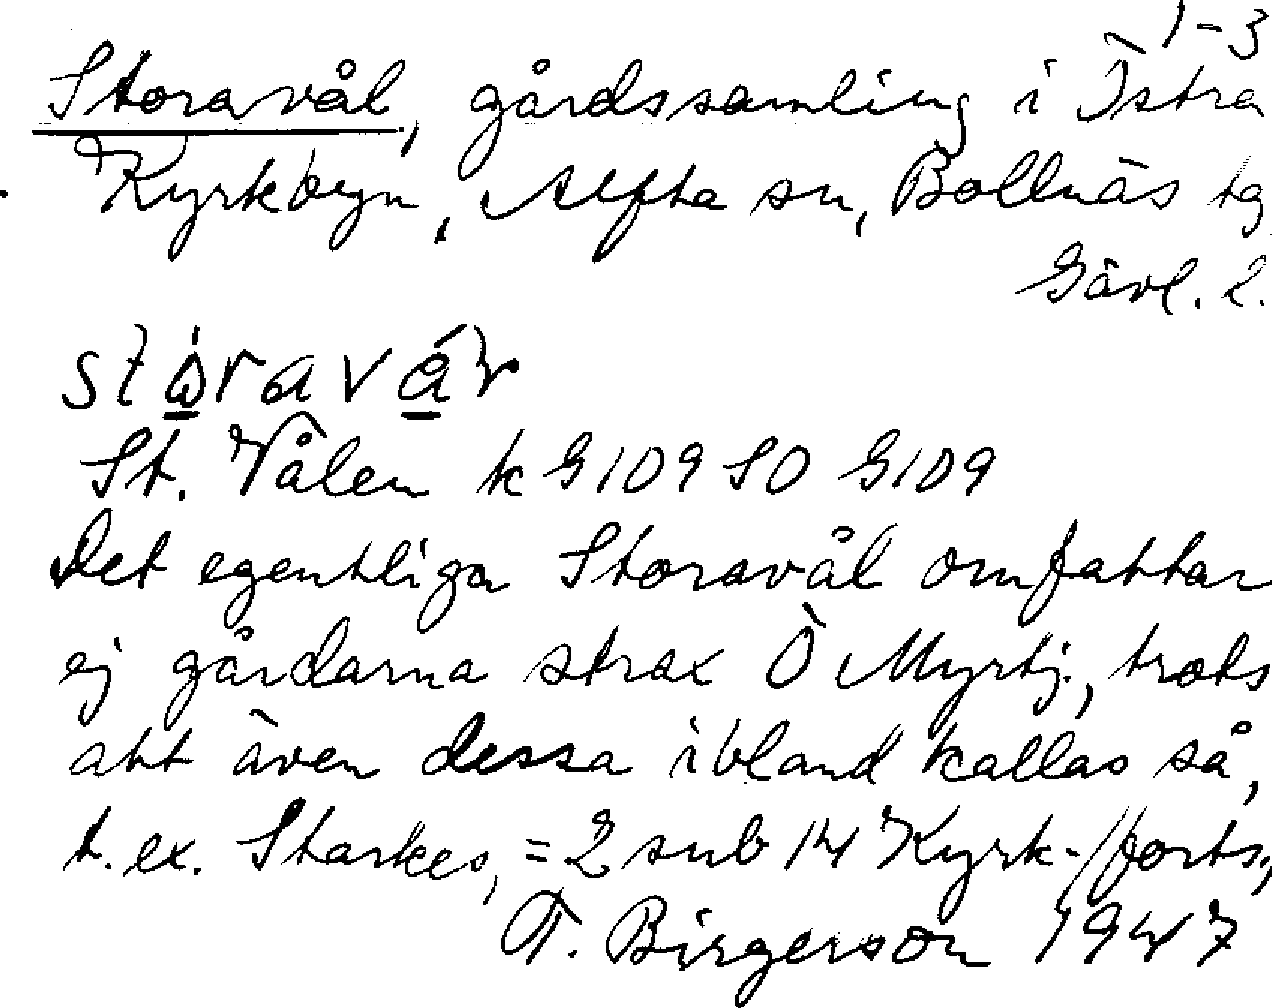 1-3
Storavål, gårdssamling i Östra
Kyrkbyn, Alfta sn, Bollnäs tg
Gävl. l.
St. Vålen k G109 SO G109
Det egentliga Storavål omfattar
ej gårdarna strax Ö Myrtj., trots
att även dessa ibland kallas så,
t.ex. Starkes, = 2 sub 14 Kyrk-/forts.,
T. Birgerson 1947